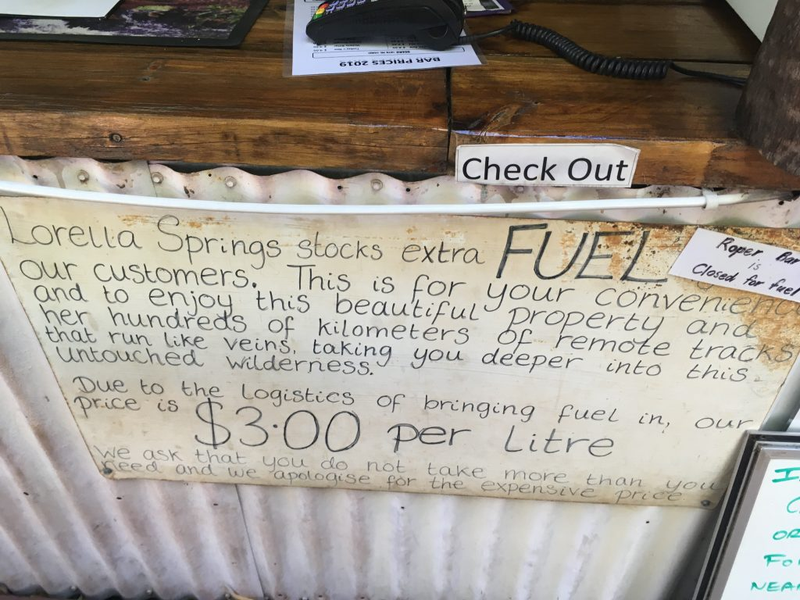 BAR PRICES 2019
Check Out
Lorella Springs stocks extra FUEL
our customers. This is for your convenienc
and to enjoy this beautiful property and
her hundreds of kilometers of remote tracks
that run like veins, taking you deeper into this
untouched wilderness.
Due to the logistics of bringing fuel in, our
price is $3.00 per Litre
we ask that you do not take more than you
need and we apologise for the expensive price
Roper Bar
is
Closed for fuel
OR
FO
NEA